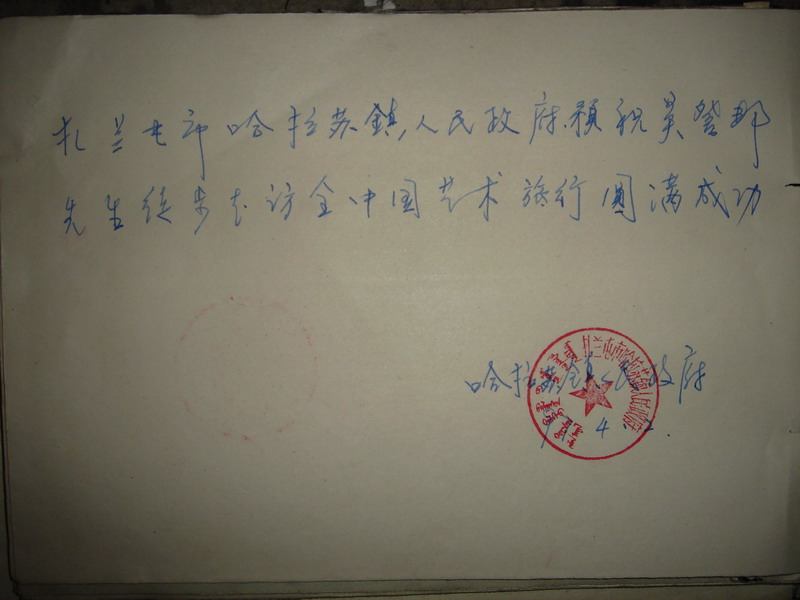 扎兰屯市哈拉苏鎮人民政府预祝吴登邦
先生徒步走访全中国艺术旅行圆满成功
哈拉苏镇人民政府
扎兰屯市哈拉苏镇人民政府